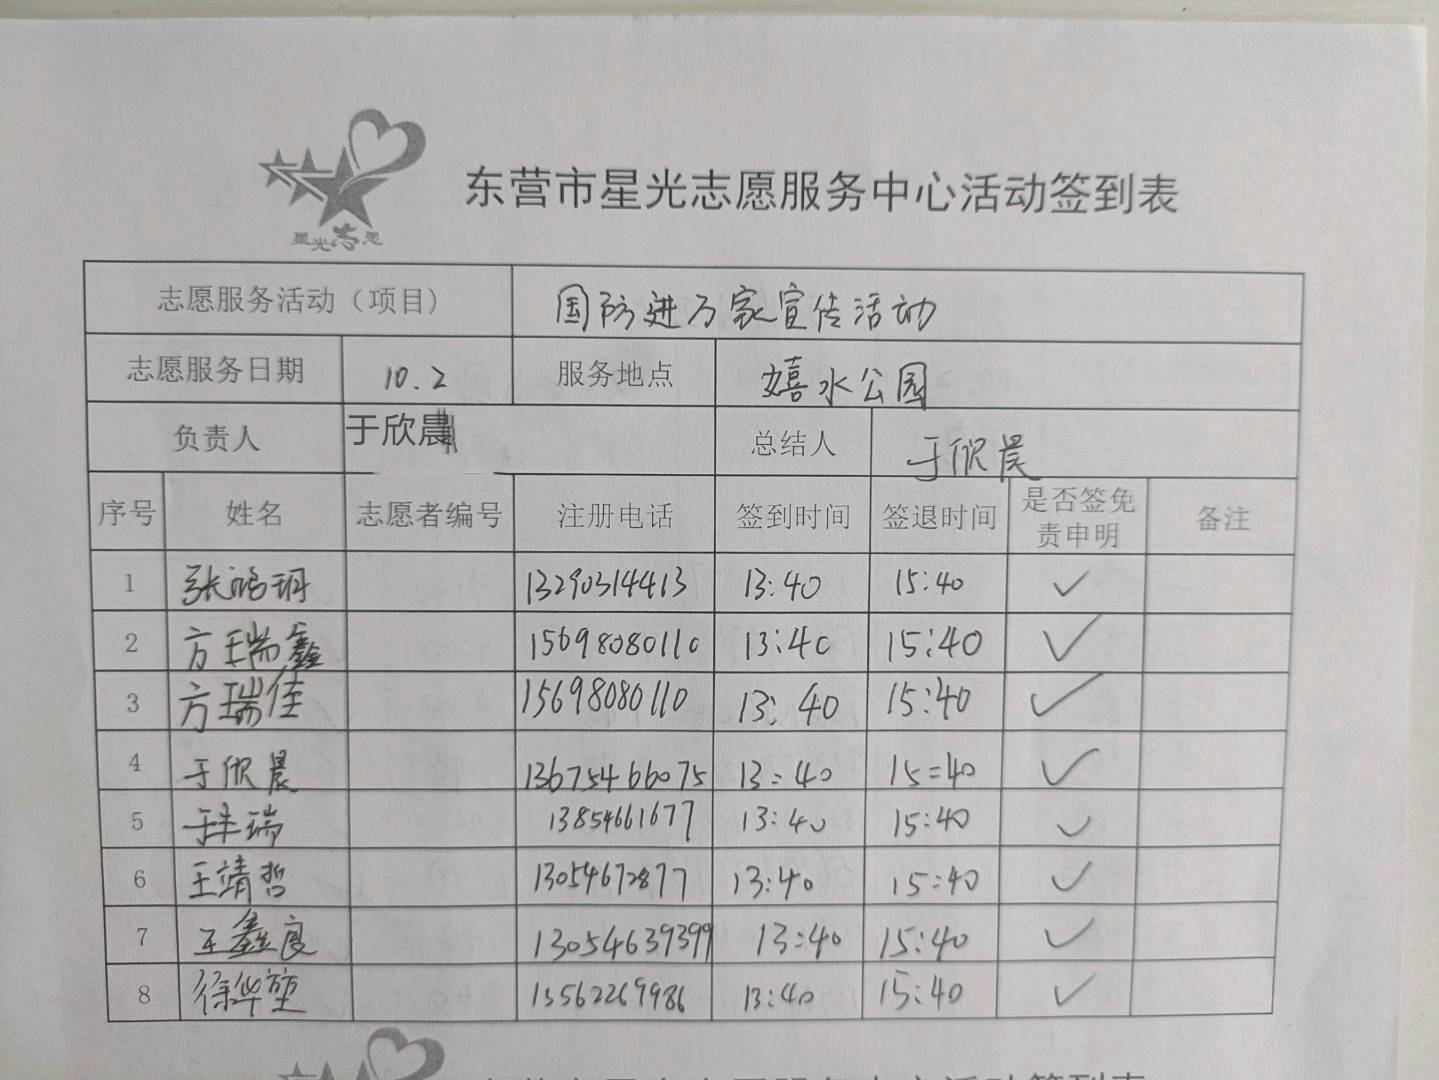 星光志愿
东营市星光志愿服务中心活动签到表
志愿服务活动（项目） 国防进万家宣传活动
志愿服务日期 10.2 服务地点 嬉水公园
负责人 于欣晨 总结人 于欣晨
序号 姓名 志愿者编号 注册电话 签到时间 签退时间 是否签免责申明 备注
1 张鸿玥 13290314413 13:40 15:40 ✓
2 方瑞鑫 15698080110 13:40 15:40 ✓
3 方瑞佳 15698080110 13:40 15:40 ✓
4 于欣晨 13675466075 13:40 15:40 ✓
5 瑞 13854661677 13:40 15:40 ✓
6 王靖哲 13054672877 13:40 15:40 ✓
7 王鑫良 13054639399 13:40 15:40 ✓
8 徐华堃 13562269986 13:40 15:40 ✓